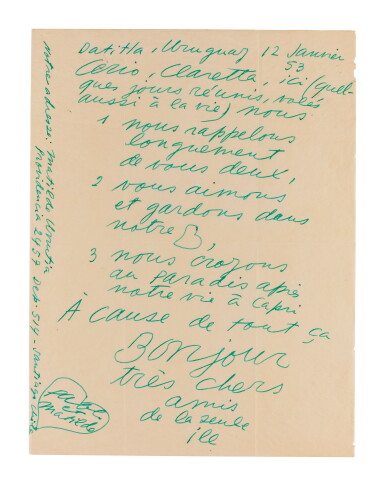 Datitla, Uruguay 12 Janvier
53
Cerio, Claretta, ici (quel-
ques jours réunis, volés
aussi à la vie) nous
1 nous rappelons
longuement
de vous deux,
2 vous aimons
et gardons dans
notre
3 nous croyons
au paradis après
notre vie à Capri
À cause de tout ça
Bonjour
très chers
amis
de la seule
ile
Notre adresse: Matilde Urrutia
Providencia 2457 Dep. 514 - Santiago Chile
Pablo
et
Matilde